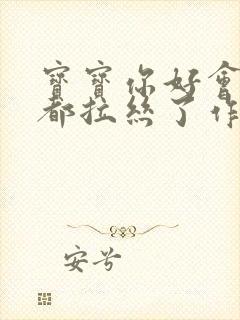 寶寶你好會
都拉絲了作
安兮